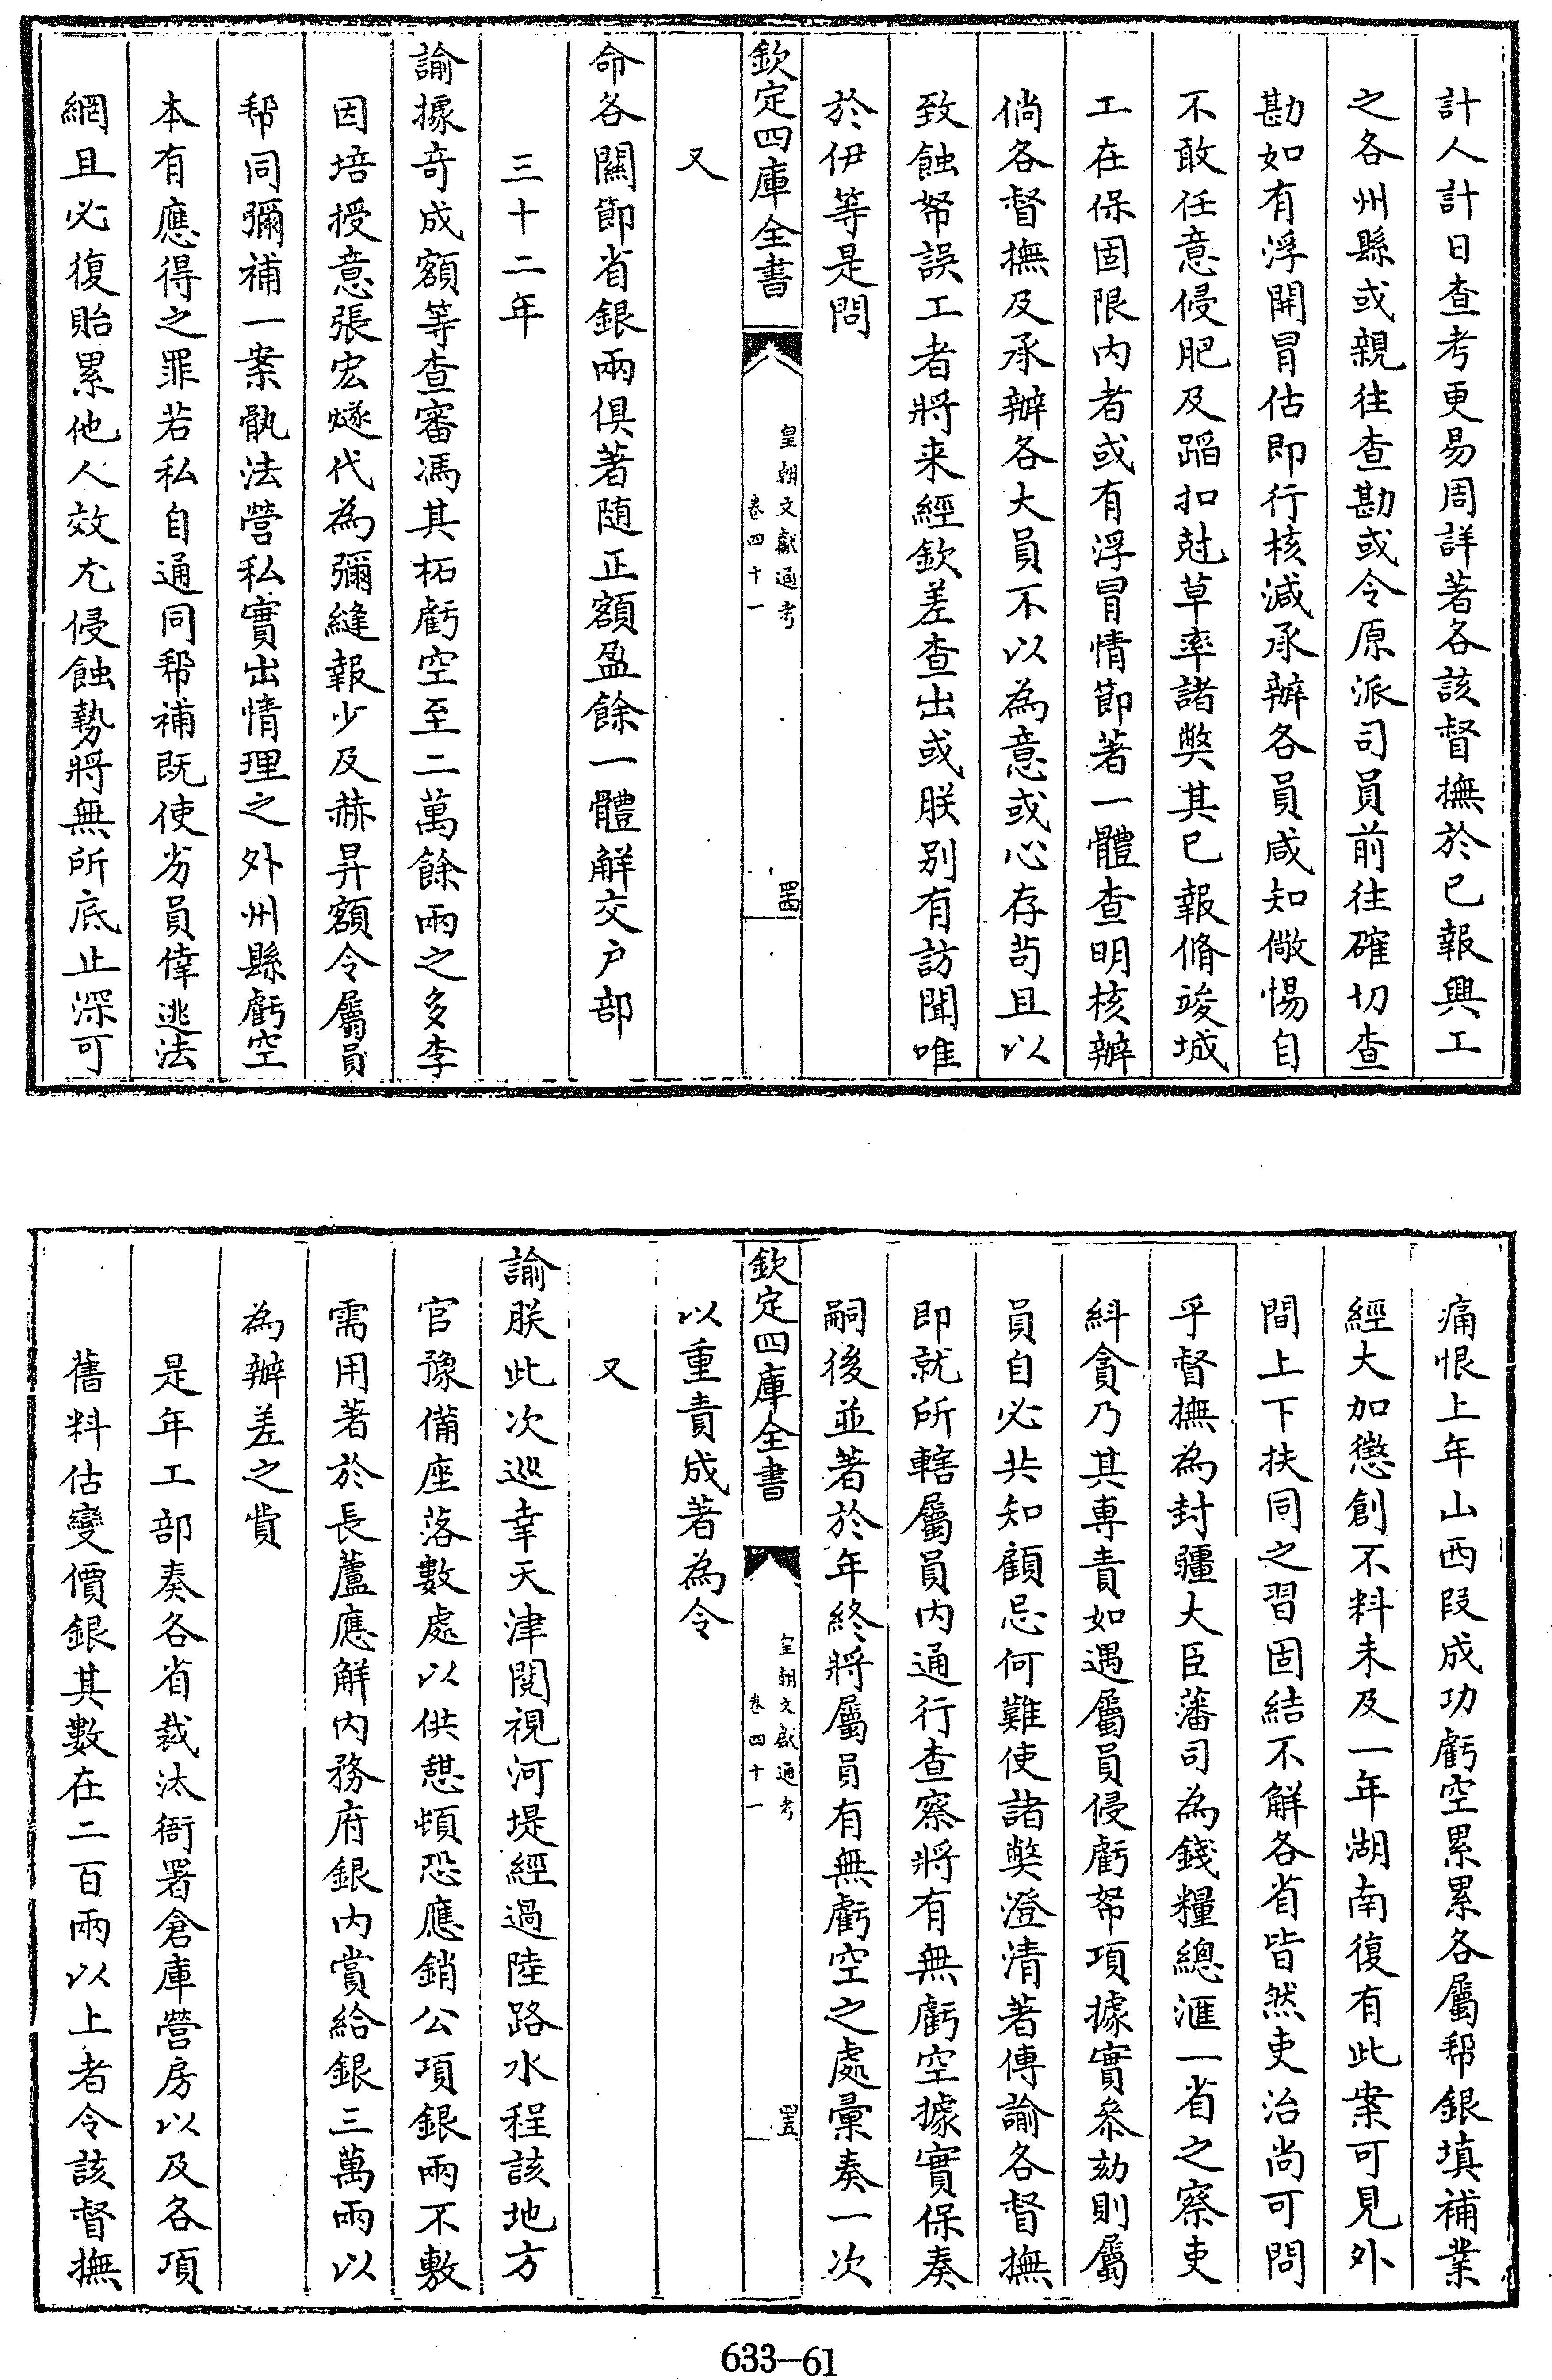 計人計日查考更易周詳著各該督撫於已報興工
之各州縣或親往查勘或令原派司員前往確切查
勘如有浮開冒估即行核減承辦各員咸知儆惕自
不敢任意侵肥及蹈扣尅草率諸獘其已報脩竣城
工在保固限内者或有浮冒情節著一體查明核辦
倘各督撫及承辦各大員不以為意或心存茍且以
致蝕帑誤工者將来經欽差查出或朕别有訪聞唯
於伊等是問
欽定四庫全書
皇朝文獻通考
卷四十一
罱
又
命各關節省銀兩俱著随正額盈餘一體解交户部
三十二年
諭據竒成額等查審馮其柘虧空至二萬餘兩之多李
因培授意張宏燧代為彌縫報少及赫昇額令屬員
帮同彌補一案骩法營私實出情理之外州縣虧空
本有應得之罪若私自通同帮補既使劣員倖逃法
網且必復貽累他人效尤侵蝕勢將無所底止深可
痛恨上年山西段成功虧空累累各屬帮銀填補業
經大加懲創不料未及一年湖南復有此案可見外
間上下扶同之習固結不解各省皆然吏治尚可問
乎督撫為封疆大臣藩司為錢糧總滙一省之察吏
糾貪乃其專責如遇屬員侵虧帑項據實叅劾則屬
員自必共知顧忌何難使諸獘澄清著傳諭各督撫
即就所轄屬員内通行查察將有無虧空據實保奏
嗣後並著於年終將屬員有無虧空之處彚奏一次
欽定四庫全書
皇朝文獻通考
卷四十一
以重責成著為令
又
諭朕此次巡幸天津閱視河堤經過陸路水程該地方
官豫備座落數處以供憇頓恐應銷公項銀兩不敷
需用著於長蘆應解内務府銀内賞給銀三萬兩以
為辦差之貲
是年工部奏各省裁汰衙署倉庫營房以及各項
舊料估變價銀其數在二百兩以上者令該督撫
633—61